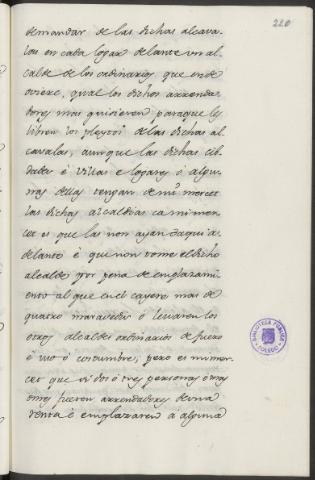 220
demandar de las dichas alcava-
las en cada logar delante un al-
calde de los ordinarios que ende
oviere, qual los dichos arrenda-
dores mas quisieren para que les
libren los pleytos de las dichas al-
cavalas, aunque las dichas cib-
dades é villas e logares ó algu-
nas dellas tengan de mi merced
las dichas alcaldias ca mi mer-
ced es que las non ayan daqui a-
delante é que non tome el dicho
alcalde por pena de emplazami-
ento al que en el cayere mas de
quatro maravedis ó levaren los
otros alcaldes ordinarios de fuero
ó uso ó costumbre, pero es mi mer-
ced que si dos ó tres personas ó mas
omes fueren arrendadores de una
renta é emplazaren á alguna
BIBLIOTECA PUBLICA
TOLEDO